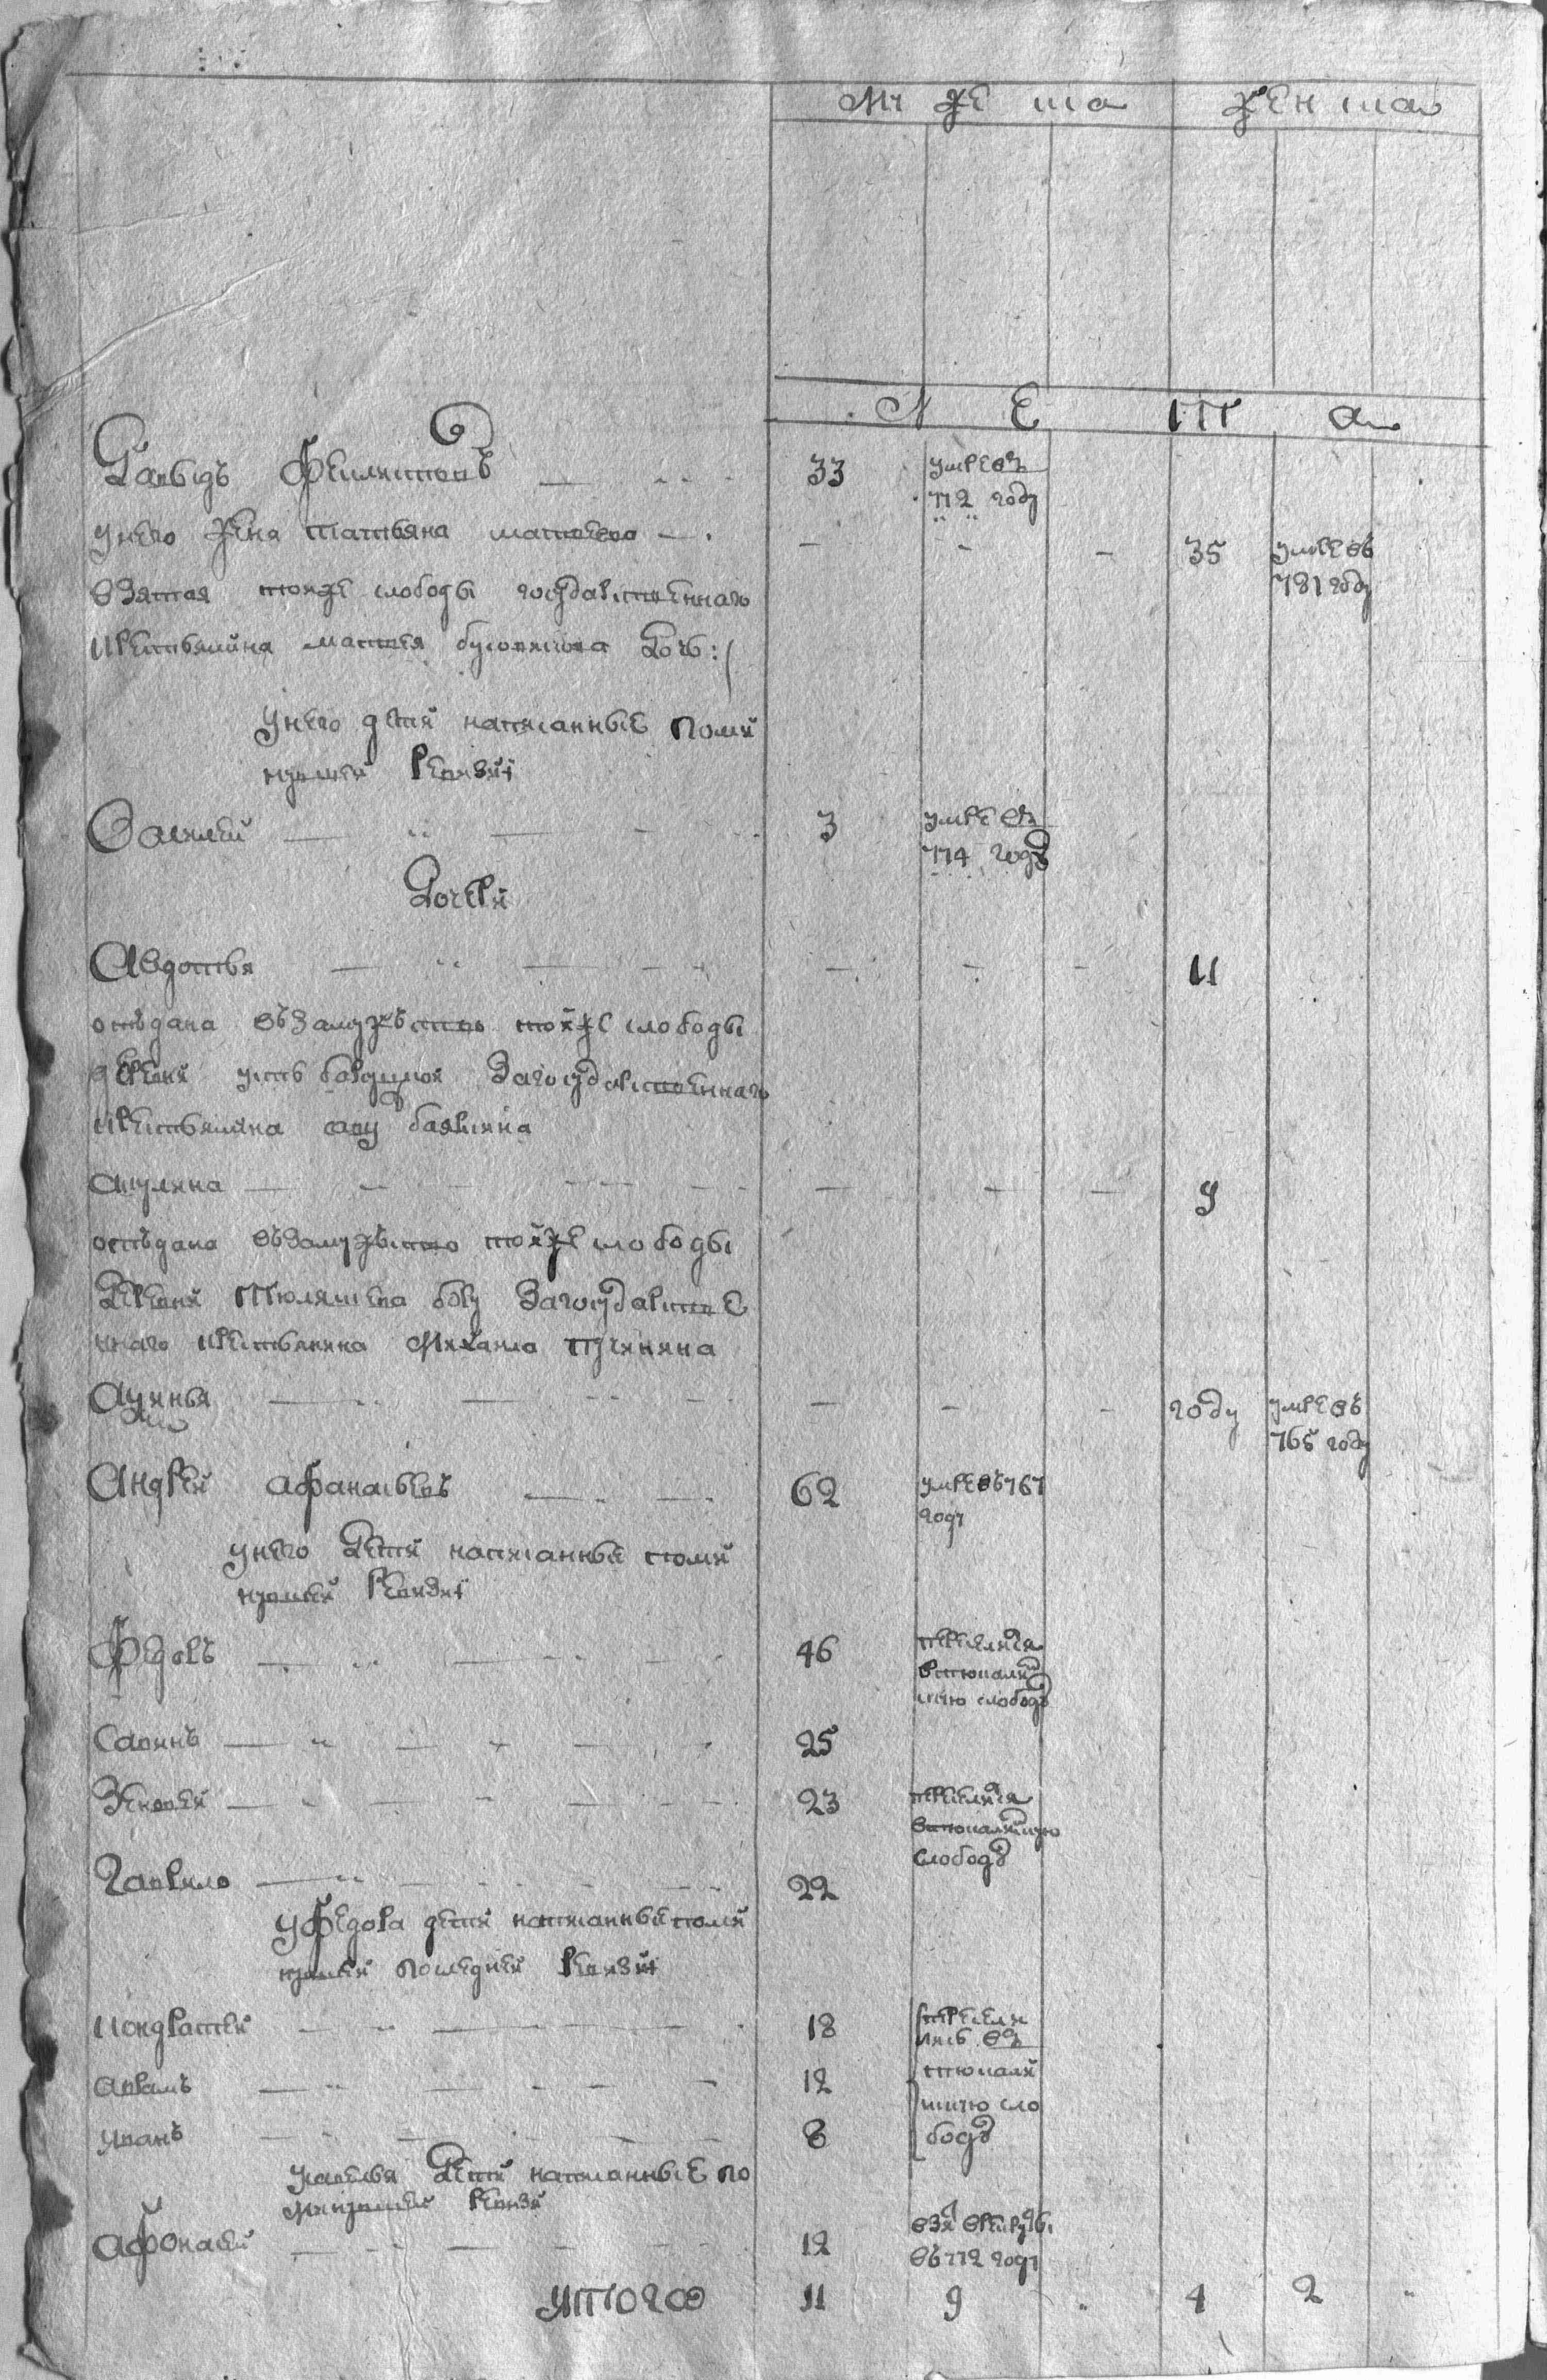 Мужеска Женска
Л Е Т А
Давыдъ Филиповъ 33 умре въ
772 году
у него жена Татьяна Матвеева 35 умре въ
781 году
взятая тойже слободы государственнаго
крестьянина Матвея дочь:/
у него дети написанные по ми
нувшей ревизиi
Василей 3 умре въ
774 годъ
Дочери
Авдотья 11
отъдана въ замужъство тойже слободы
деревни за государственнаго
крестьянина
Акулина 9
отъдана въ замужъство тойже слободы
деревни за государстве
ннаго крестьянина Михаила
Аксинья году умре въ
765 году
Андрей Афанасьевъ 62 умре въ 767
году
у него дети написанные по ми
нувшей ревизиi
Федоръ 46 переселился
слободу
Савинъ 25
Зиновей 23 переселился
слободу
Гаврило 22
у Федора дети написанные по ми
нувшей последней ревизиi
Кондратей 18 переселились въ
Аврамъ 12
Иванъ 8 слободу
у Савелья дети написанные по
минувшей ревизи
Афонасей 12 взят в рекруты
въ 772 году
Итого 11 9 4 2